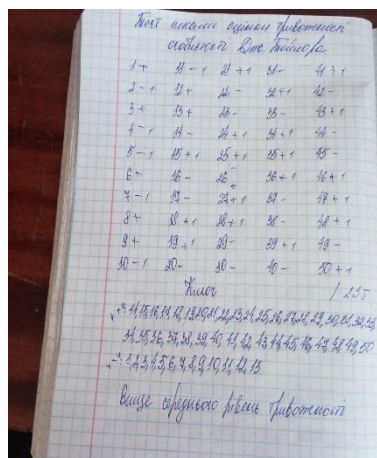 Тест шкали оцінки тривожності
особистості Дж. Тейлора
1 + 11 - 1 21 + 1 31 - 41 + 1
2 - 1 12 + 22 - 32 + 1 42 -
3 + 13 + 23 - 33 - 43 + 1
4 - 1 14 - 24 + 1 34 + 1 44 -
5 - 1 15 + 1 25 + 1 35 + 1 45 -
6 + 16 - 26 - 36 + 1 46 + 1
7 - 1 17 - 27 + 1 37 - 47 + 1
8 + 18 + 1 28 + 1 38 - 48 + 1
9 + 19 + 1 29 - 39 + 1 49 -
10 - 1 20 - 30 - 40 - 50 + 1
Ключ
"+": 14, 15, 16, 17, 18, 19, 20, 21, 22, 23, 24, 25, 26, 27, 28, 29, 30, 31, 32, 33,
34, 35, 36, 37, 38, 39, 40, 41, 42, 43, 44, 45, 46, 47, 48, 49, 50
"-": 1, 2, 3, 4, 5, 6, 7, 8, 9, 10, 11, 12, 13
Вище середнього рівень тривожності